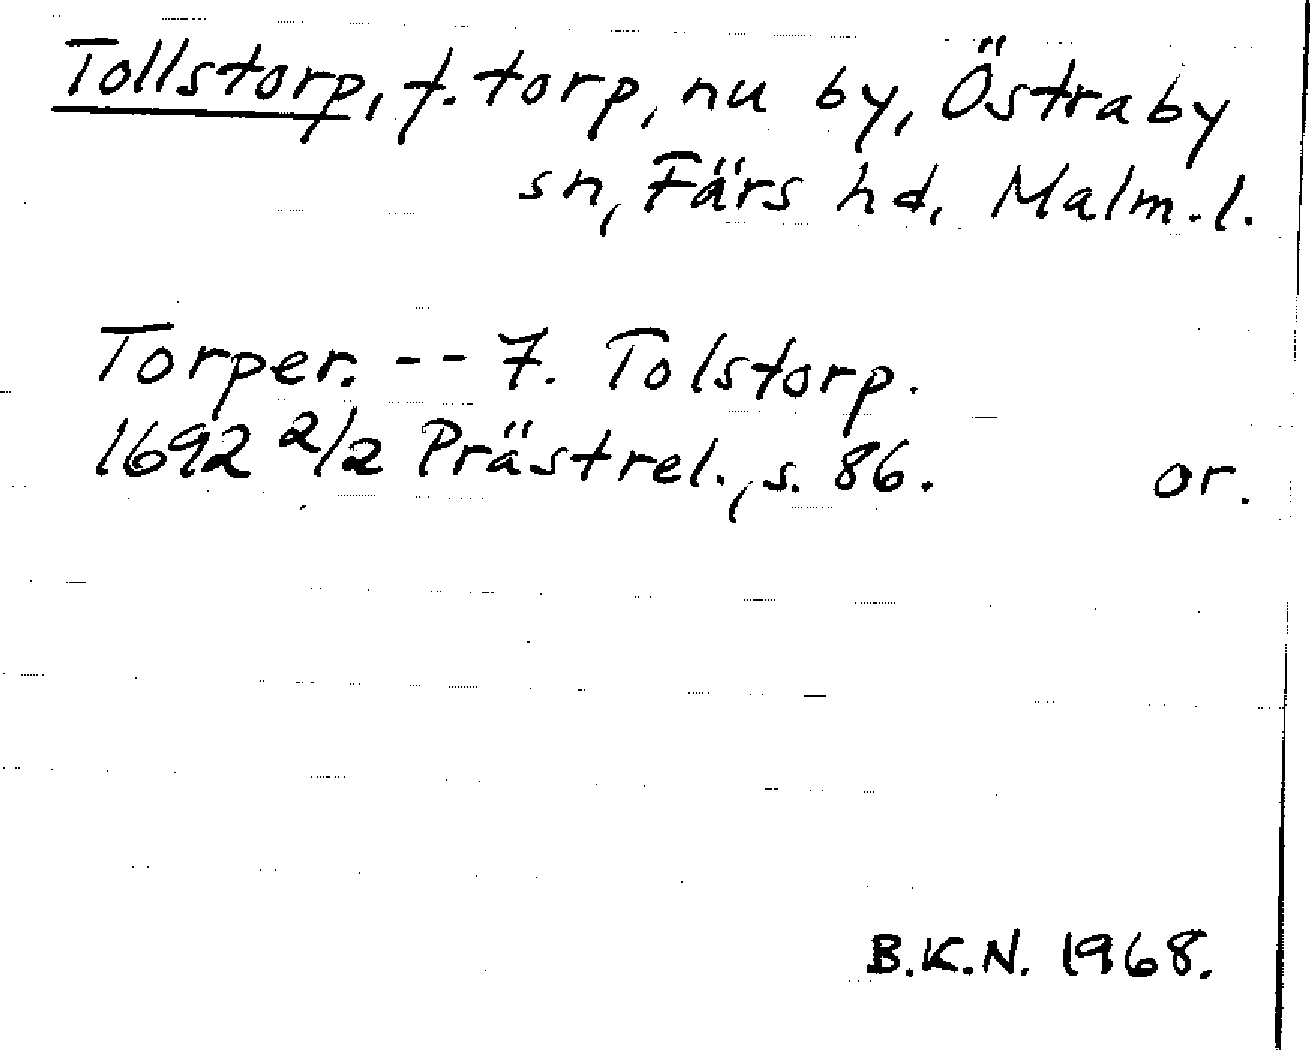 Tollstorp, f. torp, nu by, Östraby
sn, Färs hd. Malm.l.
Torper. -- 7. Tolstorp.
1692 2/2 Prästrel., s. 86. or.
B.K.N. 1968.